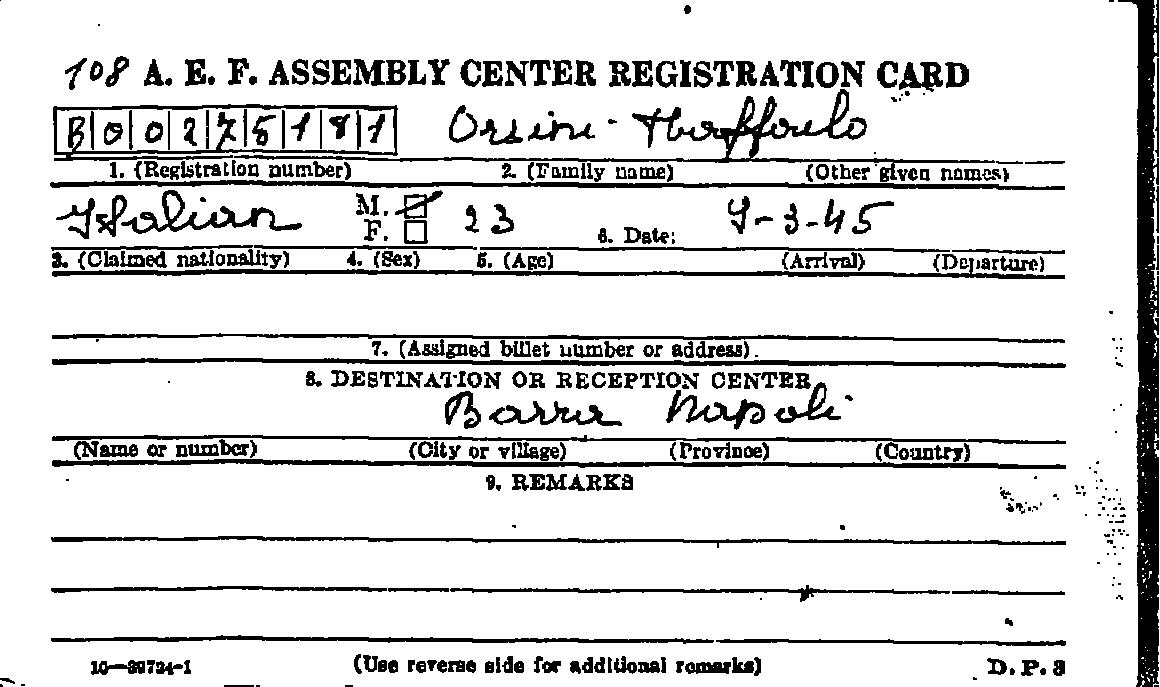 108 A. E. F. ASSEMBLY CENTER REGISTRATION CARD
B 0 0 2 7 5 1 8 1 Orsini -
1. (Registration number) 2. (Family name) (Other given names)
Italian M. F. 23 6. Date: 9-3-45
3. (Claimed nationality) 4. (Sex) 5. (Age) (Arrival) (Departure)
7. (Assigned billet number or address).
8. DESTINATION OR RECEPTION CENTER
Barra Napoli
(Name or number) (City or village) (Province) (Country)
9. REMARKS
16—39724-1 (Use reverse side for additional remarks) D. P. 3